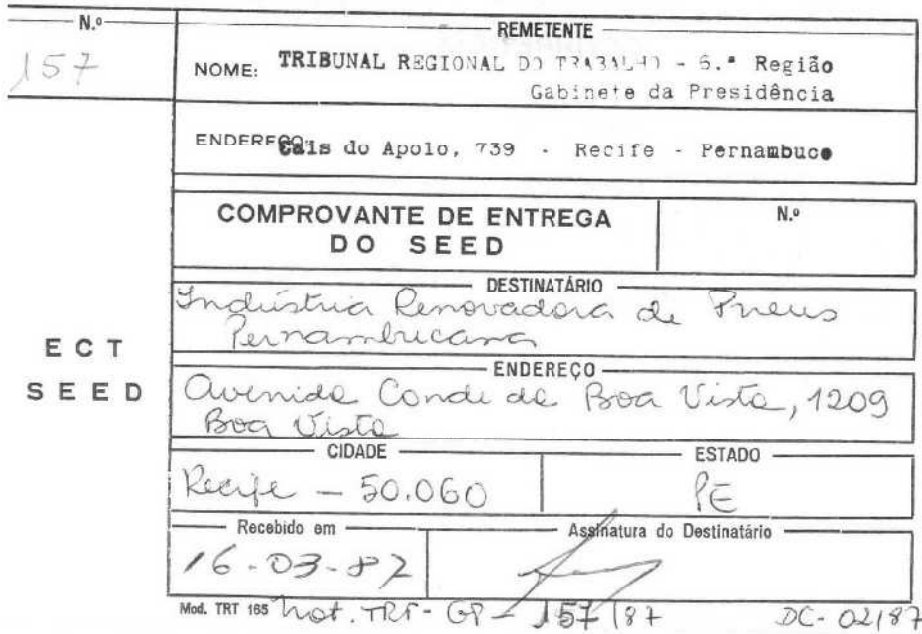 N.º
157
REMETENTE
NOME: TRIBUNAL REGIONAL DO TRABALHO - 6.ª Região
Gabinete da Presidência
ENDEREÇO: Cais do Apolo, 739 - Recife - Pernambuco
COMPROVANTE DE ENTREGA
DO SEED
N.º
DESTINATÁRIO
Indústria Renovadora de Pneus
Pernambucana
ECT
SEED
ENDEREÇO
Avenida Conde da Boa Vista, 1209
Boa Vista
CIDADE
ESTADO
Recife - 50.060
PE
Recebido em
Assinatura do Destinatário
16-03-87
Mod. TRT 165 Not. TRT - GP - 157/87 DC-02/87